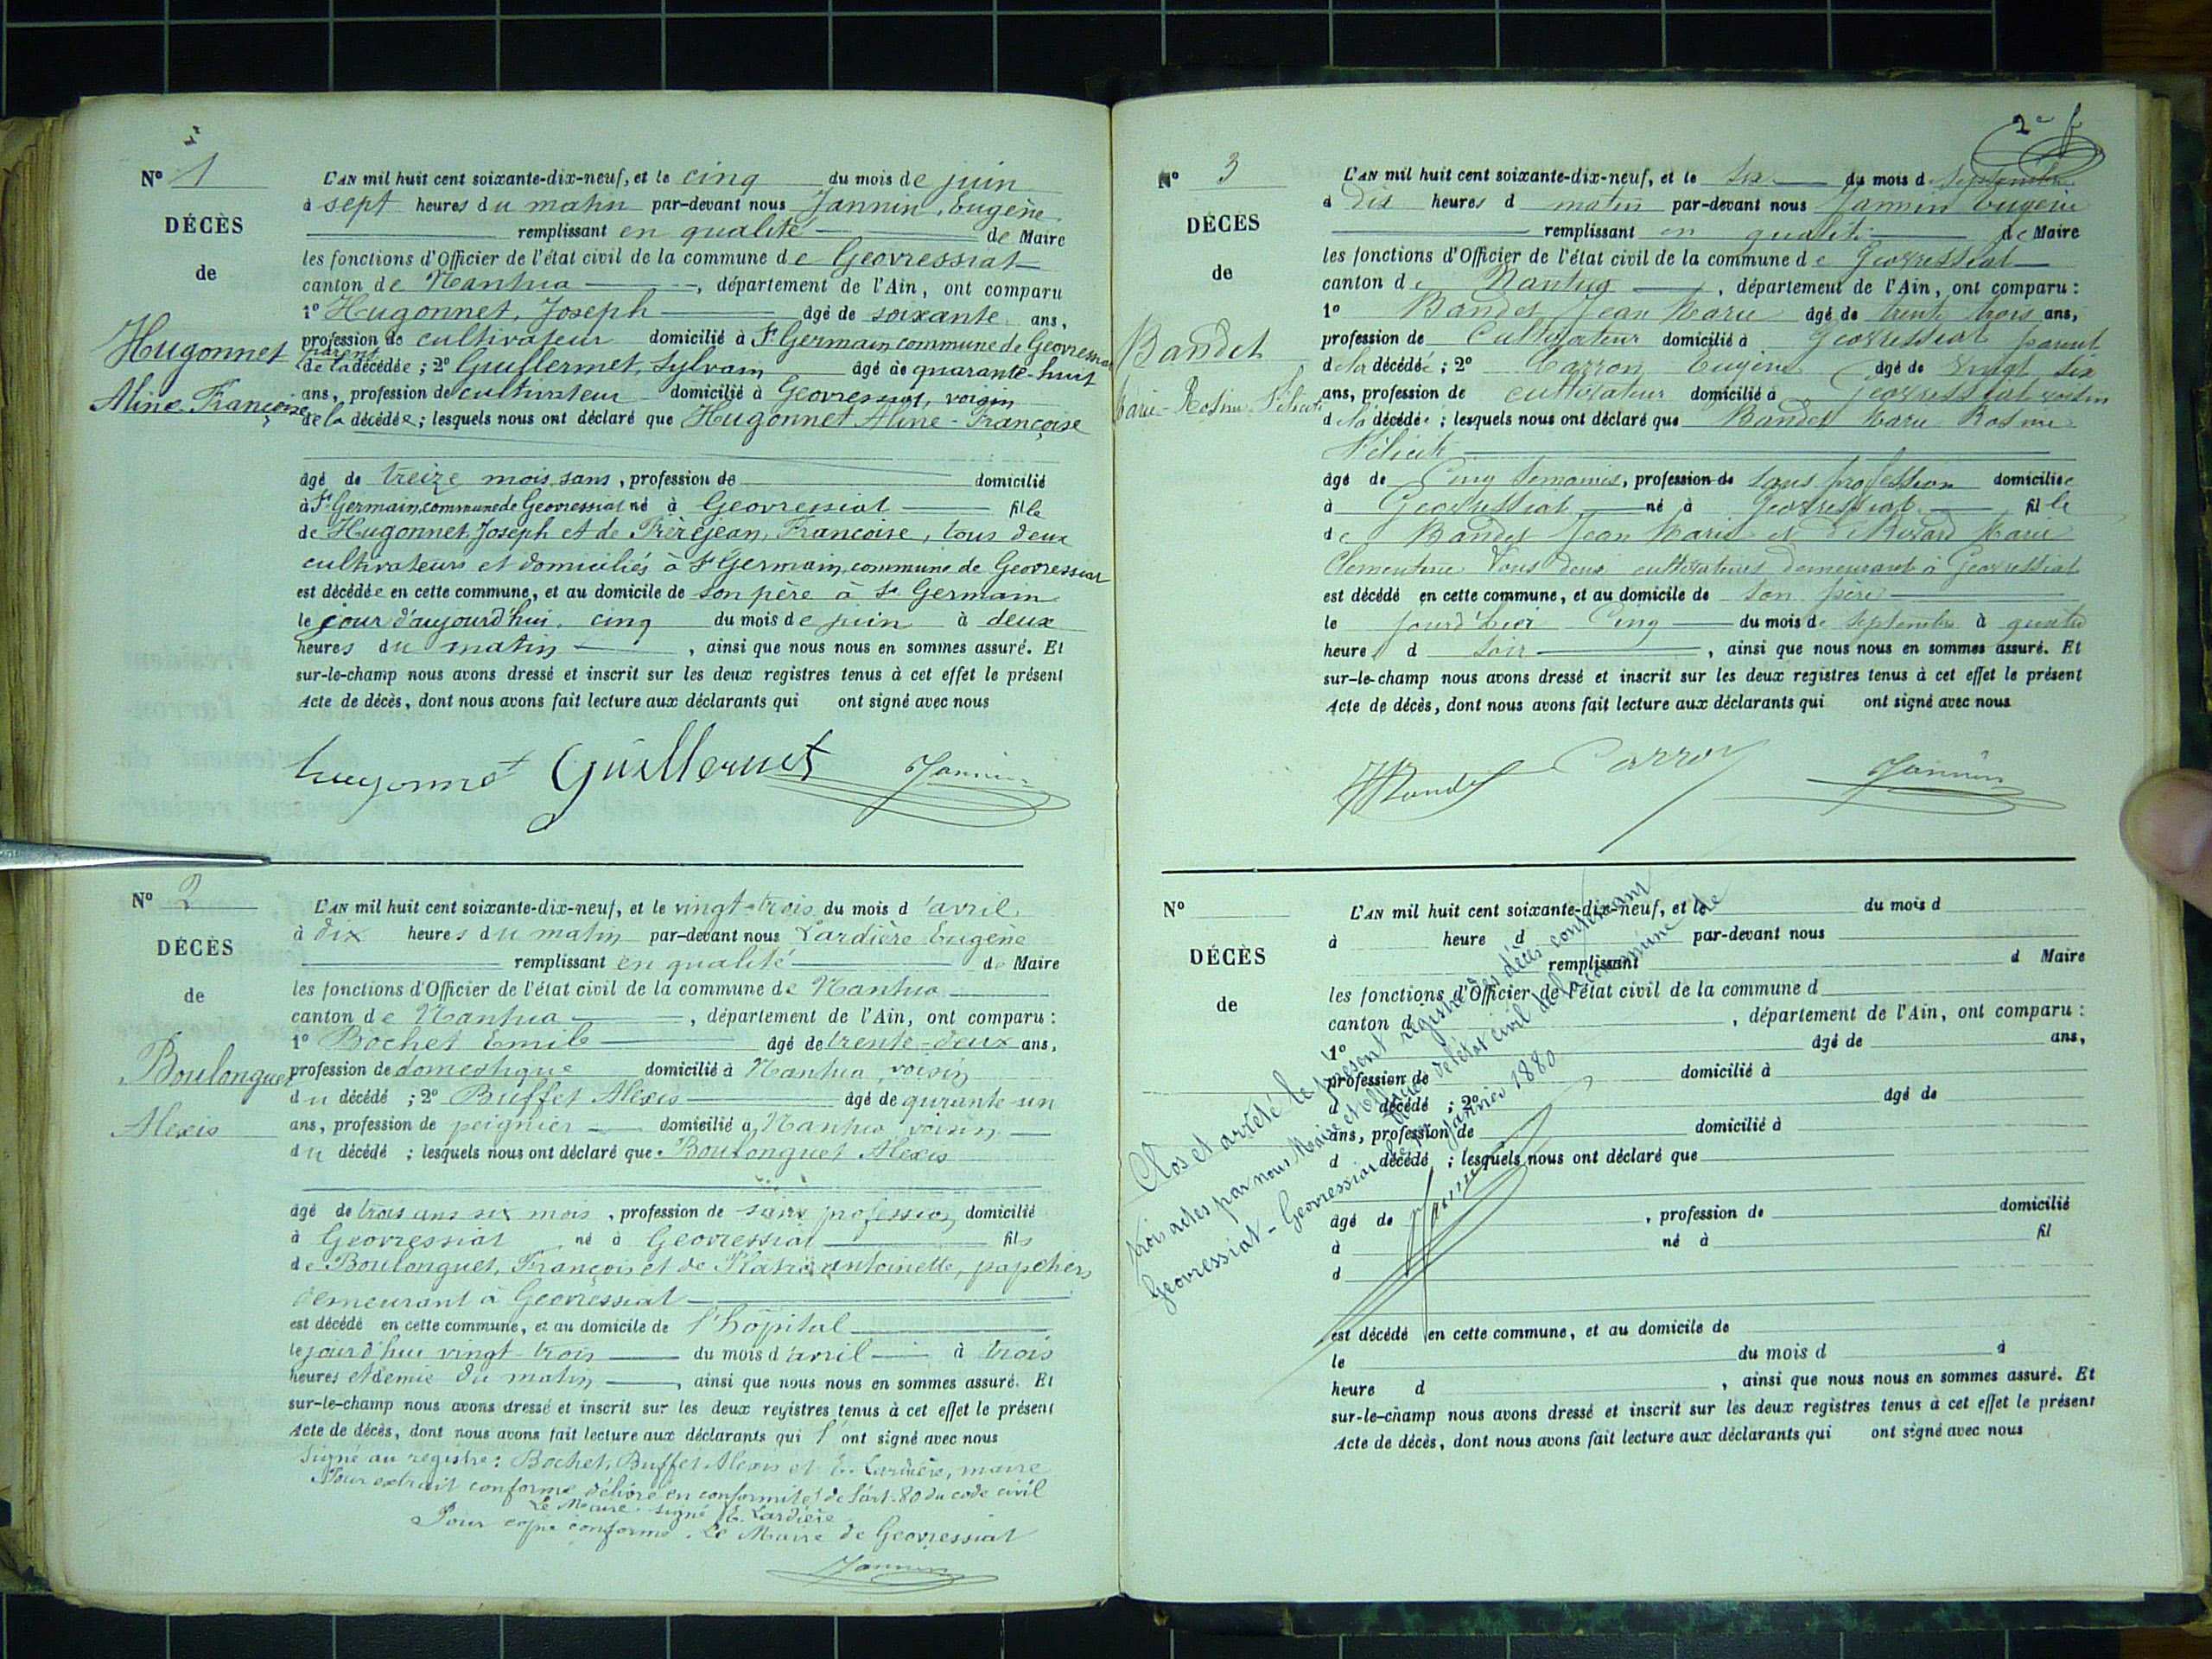 N° 1
DÉCÈS
de
Hugonnet
Aline Françoise
L'AN mil huit cent soixante-dix-neuf, et le cinq du mois de juin
à sept heures du matin par-devant nous Jannin, Eugène
remplissant en qualité de Maire
les fonctions d'Officier de l'état civil de la commune de Geovressiat
canton de Nantua, département de l'Ain, ont comparu
1° Hugonnet, Joseph âgé de soixante ans,
profession de cultivateur domicilié à St Germain commune de Geovressiat
parent
de la décédée ; 2° Guillermet, Sylvain âgé de quarante-huit
ans, profession de cultivateur domicilié à Geovressiat, voisin
de la décédée ; lesquels nous ont déclaré que Hugonnet Aline-Françoise
âgé de treize mois, sans, profession de domicilié
à St Germain, commune de Geovressiat né à Geovressiat fille
de Hugonnet Joseph et de Frèrejean, Françoise, tous deux
cultivateurs et domiciliés à St Germain, commune de Geovressiat
est décédée en cette commune, et au domicile de son père à St Germain
le jour d'aujourd'hui, cinq du mois de juin à deux
heures du matin, ainsi que nous nous en sommes assuré. Et
sur-le-champ nous avons dressé et inscrit sur les deux registres tenus à cet effet le présent
Acte de décès, dont nous avons fait lecture aux déclarants qui ont signé avec nous
hugonnet Guillermet Jannin
N° 2
DÉCÈS
de
Boulonguet
Alexis
L'AN mil huit cent soixante-dix-neuf, et le vingt-trois du mois d'avril
à dix heures du matin par-devant nous Lardière Eugène
remplissant en qualité de Maire
les fonctions d'Officier de l'état civil de la commune de Nantua
canton de Nantua, département de l'Ain, ont comparu :
1° Bochet Emile âgé de trente-deux ans,
profession de domestique domicilié à Nantua, voisin
du décédé ; 2° Buffet Alexis âgé de qurante-un
ans, profession de peignier domicilié à Nantua, voisin
du décédé ; lesquels nous ont déclaré que Boulonguet Alexis
âgé de trois ans six mois, profession de sans profession domicilié
à Geovressiat né à Geovressiat fils
de Boulonguet, François et de antoinette,
demeurant à Geovressiat
est décédé en cette commune, et au domicile de l'hôpital
le jourd'hui vingt-trois du mois d'avril à trois
heures et demie du matin, ainsi que nous nous en sommes assuré. Et
sur-le-champ nous avons dressé et inscrit sur les deux registres tenus à cet effet le présent
Acte de décès, dont nous avons fait lecture aux déclarants qui ont signé avec nous
Signé au registre : Bochet, Buffet Alexis et E. Lardière, maire
Pour extrait conforme délivré en conformité de l'art. 80 du code civil
Le Maire signé E. Lardière
Pour copie conforme. Le Maire de Geovressiat
Jannin
2e f
N° 3
DÉCÈS
de
Bandet
Marie-Rosine Félicité
L'AN mil huit cent soixante-dix-neuf, et le six du mois d septembre
à Dix heures d matin par-devant nous Jannin Eugène
remplissant en qualité de Maire
les fonctions d'Officier de l'état civil de la commune de Geovressiat
canton de Nantua, département de l'Ain, ont comparu :
1° Bandet Jean Marie âgé de trente trois ans,
profession de Cultivateur domicilié à Geovressiat parent
de la décédée ; 2° Carron Eugène âgé de vingt six
ans, profession de cultivateur domicilié à Geovressiat voisin
de la décédée ; lesquels nous ont déclaré que Bandet Marie Rosine
Félicité
âgé de Cinq Semaines, profession de sans profession domiciliée
à Geovressiat né à Geovressiat fille
de Bandet Jean Marie et de Marie
Clementine Tous deux cultivateurs demeurant à Geovressiat
est décédé en cette commune, et au domicile de son père
le jourd'hier Cinq du mois de septembre à quatre
heures d soir, ainsi que nous nous en sommes assuré. Et
sur-le-champ nous avons dressé et inscrit sur les deux registres tenus à cet effet le présent
Acte de décès, dont nous avons fait lecture aux déclarants qui ont signé avec nous
Bandet Carron Jannin
N°
DÉCÈS
de
L'AN mil huit cent soixante-dix-neuf, et le du mois d
à heure d par-devant nous
remplissant d Maire
les fonctions d'Officier de l'état civil de la commune d
canton d , département de l'Ain, ont comparu :
1° âgé de ans,
profession de domicilié à
d décédé ; 2° âgé de
ans, profession de domicilié à
d décédé ; lesquels nous ont déclaré que
âgé de , profession de domicilié
à né à fil
d
est décédé en cette commune, et au domicile de
le du mois d à
heure d , ainsi que nous nous en sommes assuré. Et
sur-le-champ nous avons dressé et inscrit sur les deux registres tenus à cet effet le présent
Acte de décès, dont nous avons fait lecture aux déclarants qui ont signé avec nous
Clos et arrêté le présent registre des décès contenant
trois actes par nous Maire et officier de l'état civil de la commune de
Geovressiat - Geovressiat le janvier 1880
Jannin